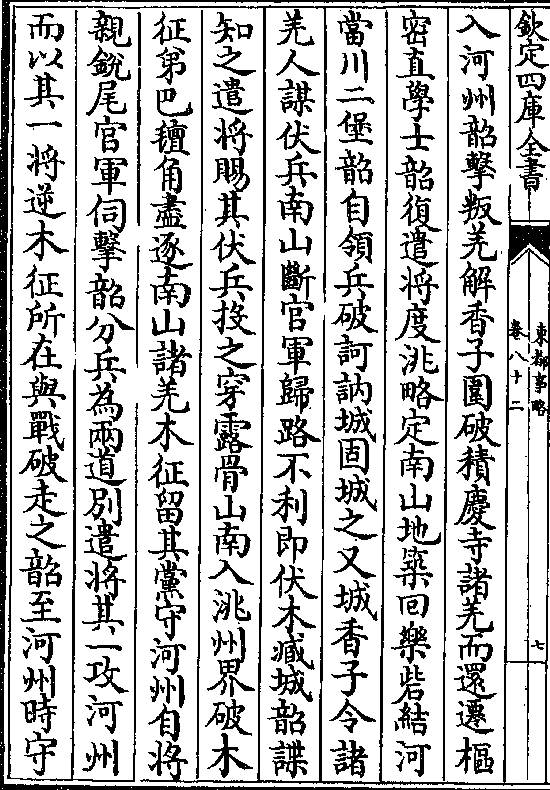 欽定四庫全書
東都事略
卷八十二
七
入河州韶擊叛羌解香子圍破積慶寺諸羌而還遷樞
密直學士韶復遣將度洮略定南山地築囘樂砦結河
當川二堡韶自領兵破訶訥城固城之又城香子令諸
羌人謀伏兵南山斷官軍歸路不利即伏木臧城韶諜
知之遣將賜其伏兵投之穿露骨山南入洮州界破木
征弟巴氊角盡逐南山諸羌木征留其黨守河州自將
親銳尾官軍伺擊韶分兵為兩道別遣將其一攻河州
而以其一將逆木征所在與戰破走之韶至河州時守